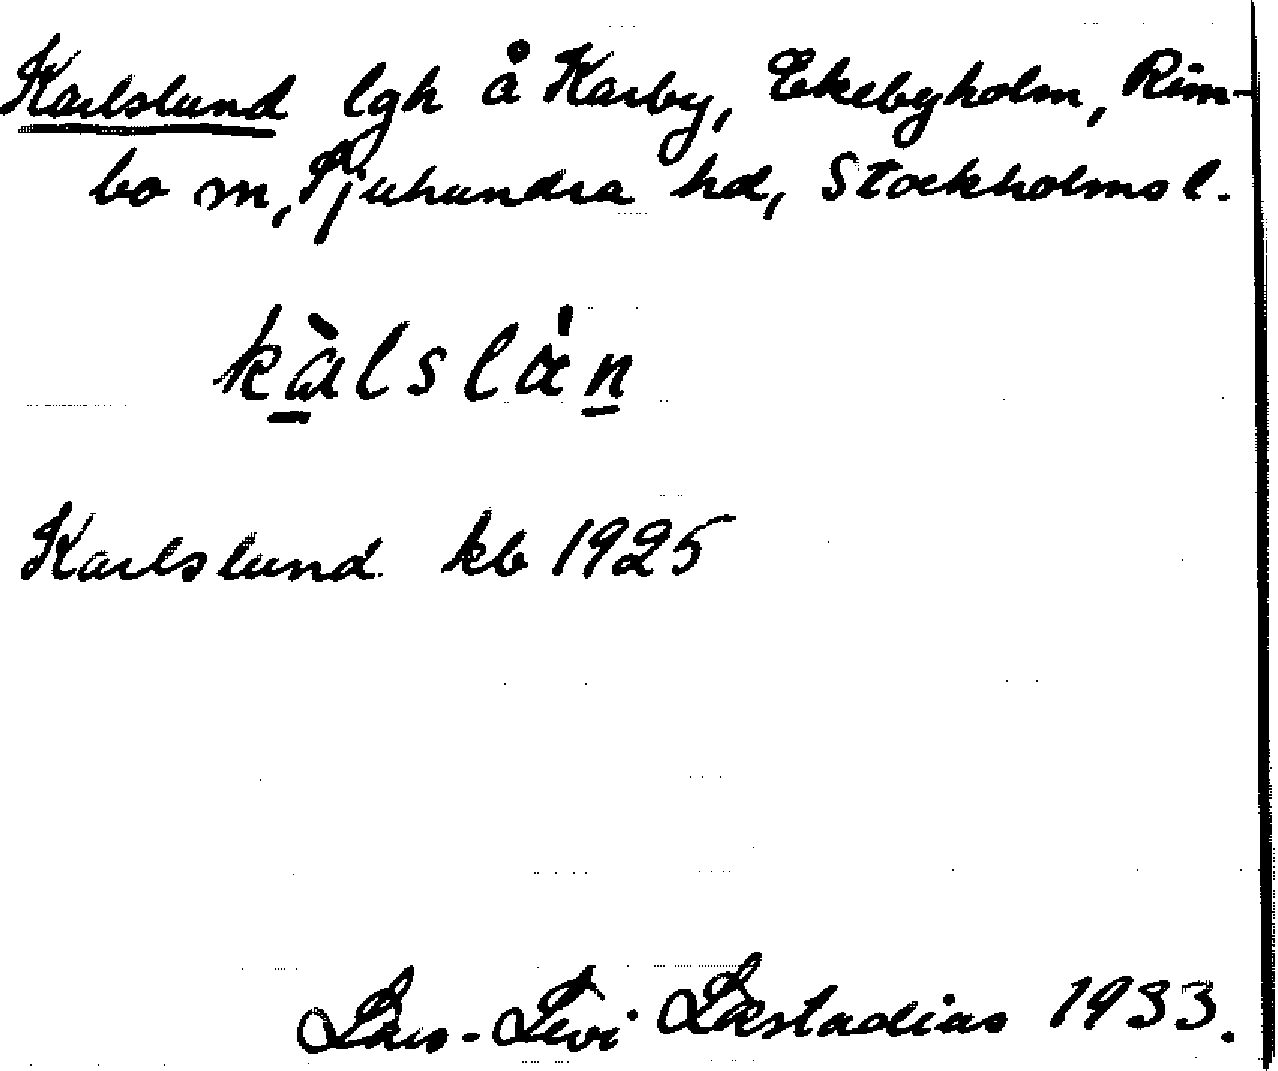 Karlslund lgh å Karby, Ekebyholm, Rim-
bo sn, Sjuhundra hd, Stockholms l.
kàlslán
Karlslund kb 1925
Lars-Levi Læstadius 1933.